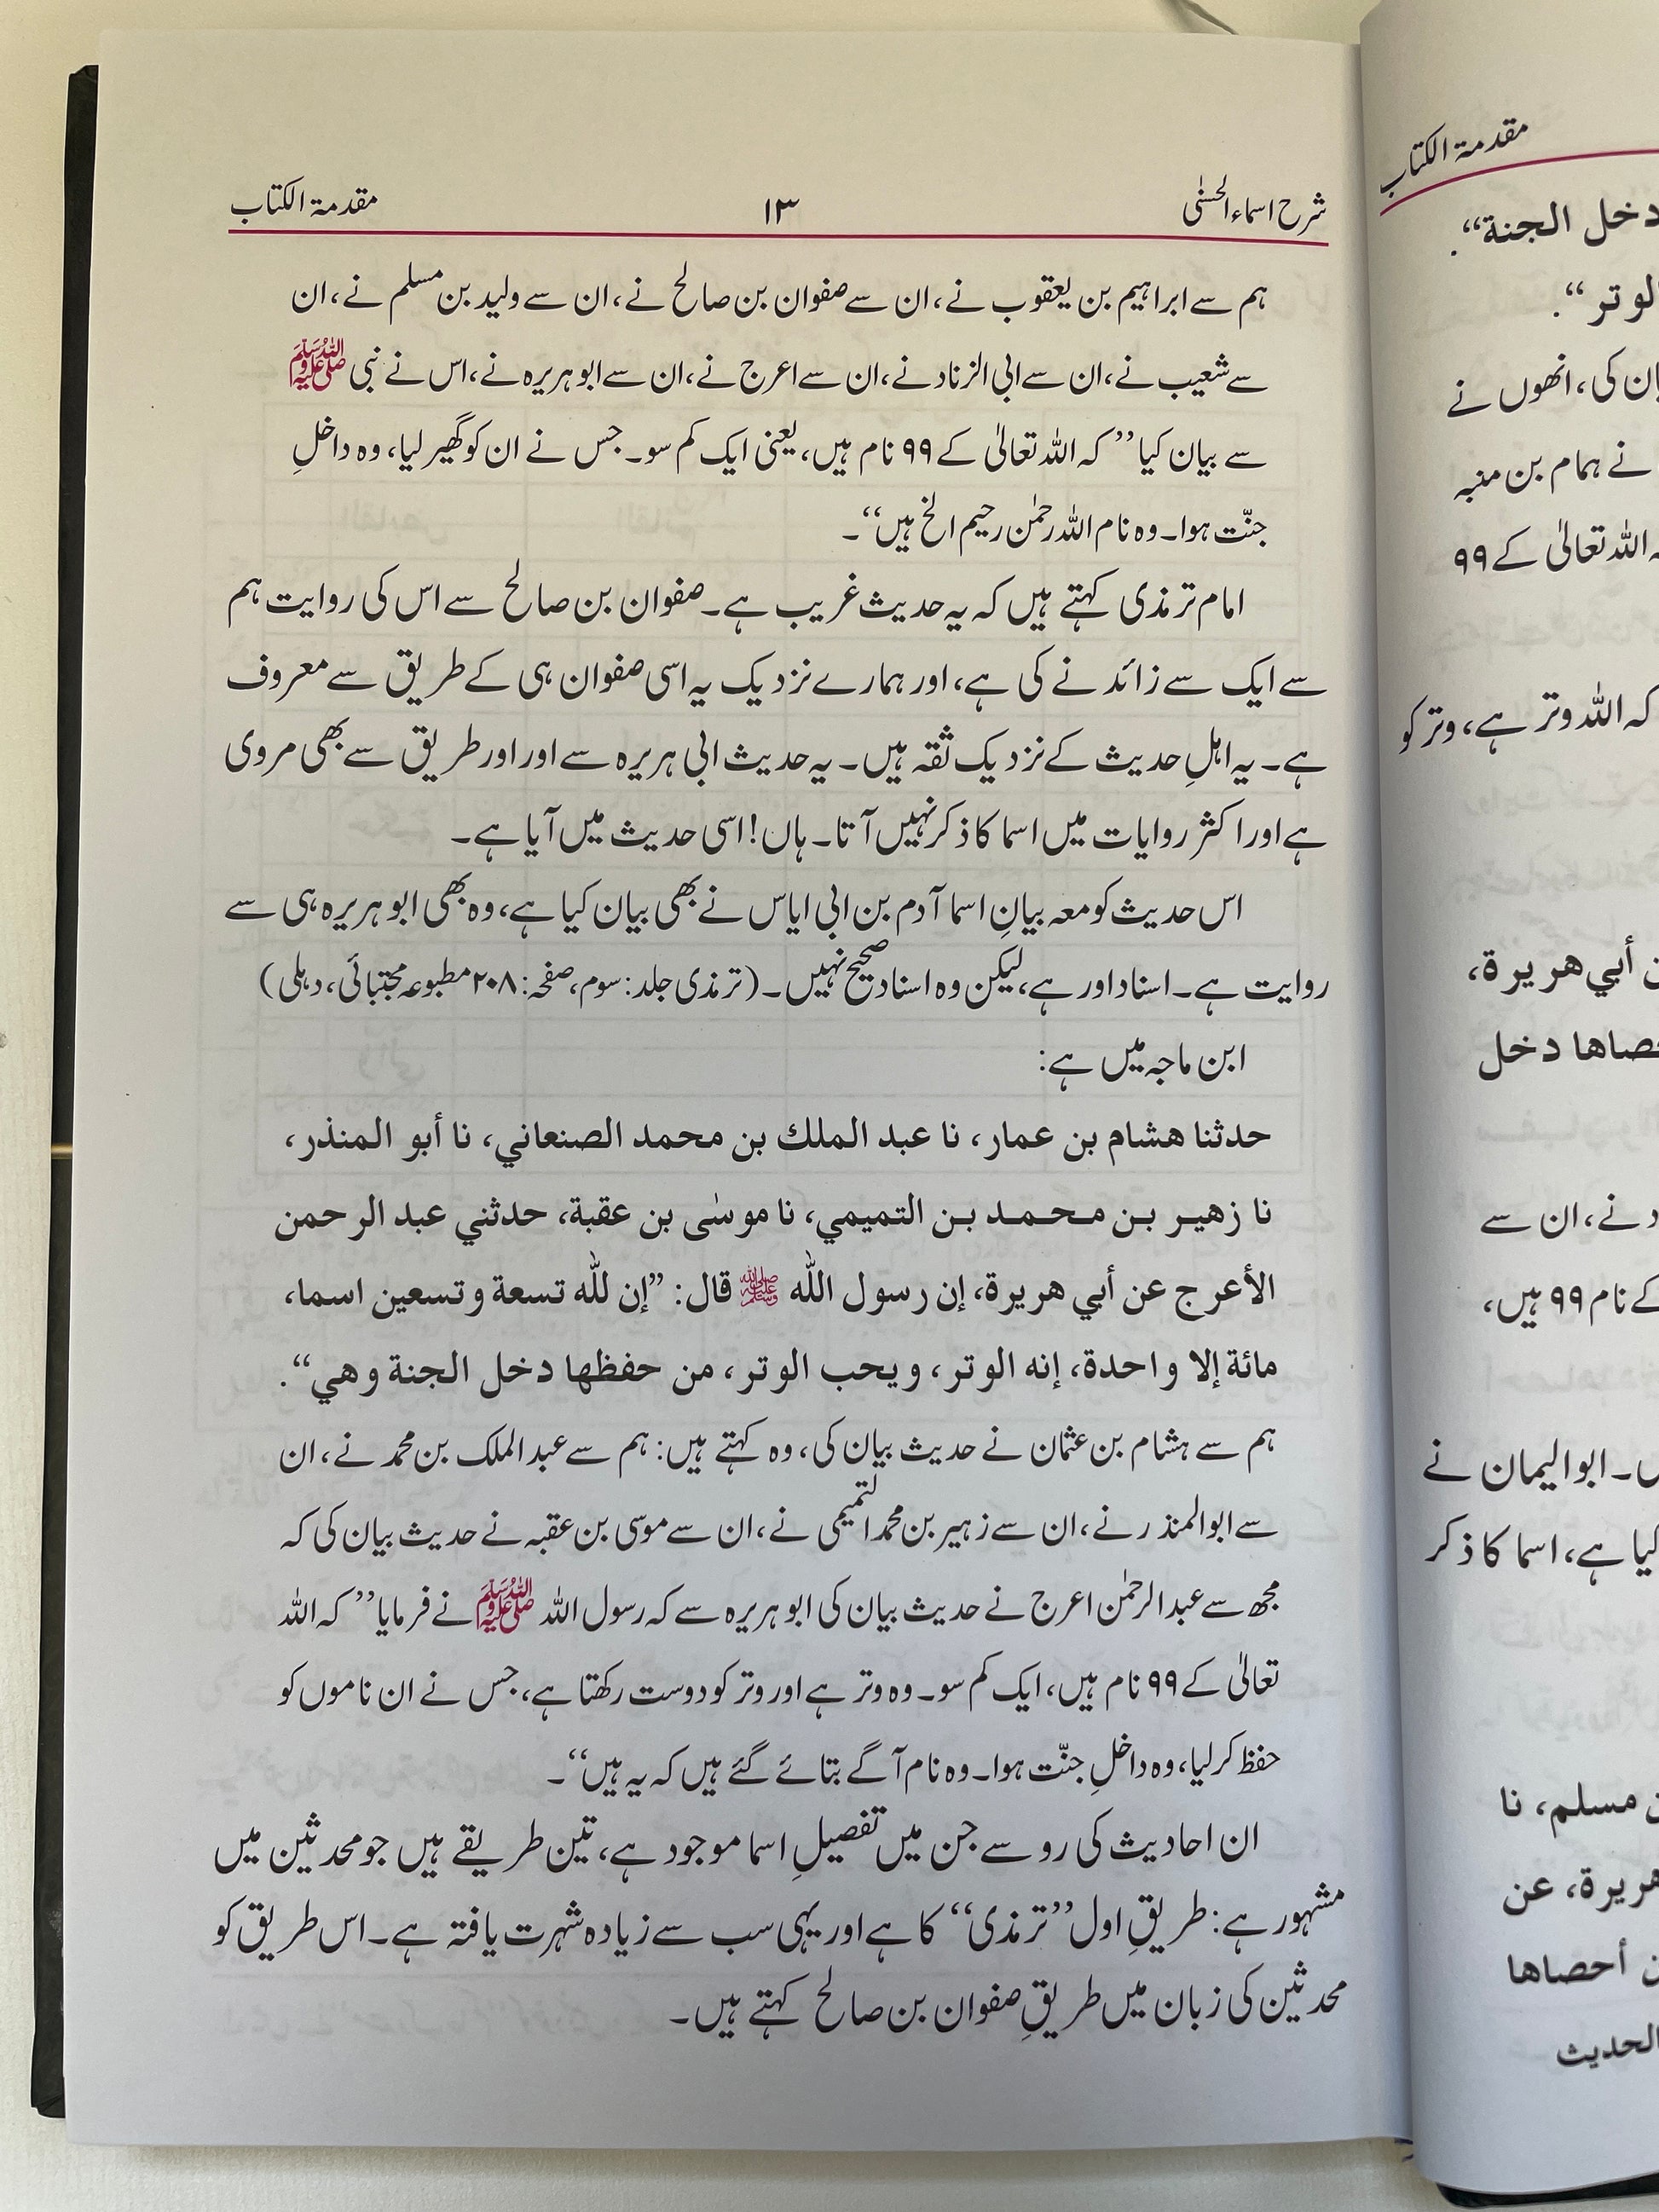 شرح اسماء الحسنٰی ۱۳ مقدمۃ الکتاب
ہم سے ابراہیم بن یعقوب نے، ان سے صفوان بن صالح نے، ان سے ولید بن مسلم نے، ان
سے شعیب نے، ان سے ابی الزناد نے، ان سے اعرج نے، ان سے ابو ہریرہ نے، اس نے نبی ﷺ
سے بیان کیا ’’کہ اللہ تعالیٰ کے ۹۹ نام ہیں، یعنی ایک کم سو۔ جس نے ان کو گھیر لیا، وہ داخلِ
جنّت ہوا۔ وہ نام اللہ رحمٰن رحیم الخ ہیں‘‘۔
امام ترمذی کہتے ہیں کہ یہ حدیث غریب ہے۔ صفوان بن صالح سے اس کی روایت ہم
سے ایک سے زائد نے کی ہے، اور ہمارے نزدیک یہ اسی صفوان ہی کے طریق سے معروف
ہے۔ یہ اہلِ حدیث کے نزدیک ثقہ ہیں۔ یہ حدیث ابی ہریرہ سے اور اور طریق سے بھی مروی
ہے اور اکثر روایات میں اسما کا ذکر نہیں آتا۔ ہاں! اسی حدیث میں آیا ہے۔
اس حدیث کو معہ بیانِ اسما آدم بن ابی ایاس نے بھی بیان کیا ہے، وہ بھی ابو ہریرہ ہی سے
روایت ہے۔ اسناد اور ہے، لیکن وہ اسناد صحیح نہیں۔ (ترمذی جلد: سوم، صفحہ: ۲۰۸ مطبوعہ مجتبائی، دہلی)
ابن ماجہ میں ہے:
حدثنا هشام بن عمار، نا عبد الملك بن محمد الصنعاني، نا أبو المنذر،
نا زهير بن محمد بن التميمي، نا موسٰى بن عقبة، حدثني عبد الرحمن
الأعرج عن أبي هريرة، إن رسول الله ﷺ قال: ”إن لله تسعة وتسعين اسما،
مائة إلا واحدة، إنه الوتر، ويحب الوتر، من حفظها دخل الجنة وهي“.
ہم سے ہشام بن عثمان نے حدیث بیان کی، وہ کہتے ہیں: ہم سے عبد الملک بن محمد نے، ان
سے ابو المنذر نے، ان سے زہیر بن محمد التمیمی نے، ان سے موسی بن عقبہ نے حدیث بیان کی کہ
مجھ سے عبد الرحمٰن اعرج نے حدیث بیان کی ابو ہریرہ سے کہ رسول اللہ ﷺ نے فرمایا ’’کہ اللہ
تعالیٰ کے ۹۹ نام ہیں، ایک کم سو۔ وہ وتر ہے اور وتر کو دوست رکھتا ہے، جس نے ان ناموں کو
حفظ کر لیا، وہ داخلِ جنّت ہوا۔ وہ نام آگے بتائے گئے ہیں کہ یہ ہیں‘‘۔
ان احادیث کی رو سے جن میں تفصیلِ اسما موجود ہے، تین طریقے ہیں جو محدثین میں
مشہور ہے: طریقِ اول ’’ترمذی‘‘ کا ہے اور یہی سب سے زیادہ شہرت یافتہ ہے۔ اس طریق کو
محدثین کی زبان میں طریقِ صفوان بن صالح کہتے ہیں۔
مقدمۃ الکتاب
دخل الجنة“.
الوتر“.
کی، انھوں نے
نے ہمام بن منبہ
اللہ تعالیٰ کے ۹۹
کہ اللہ وتر ہے، وتر کو
أبي هريرة،
دخل
نے، ان سے
کے نام ۹۹ ہیں،
ابو الیمان نے
کیا ہے، اسما کا ذکر
مسلم، نا
هريرة، عن
أحصاها
الحديث